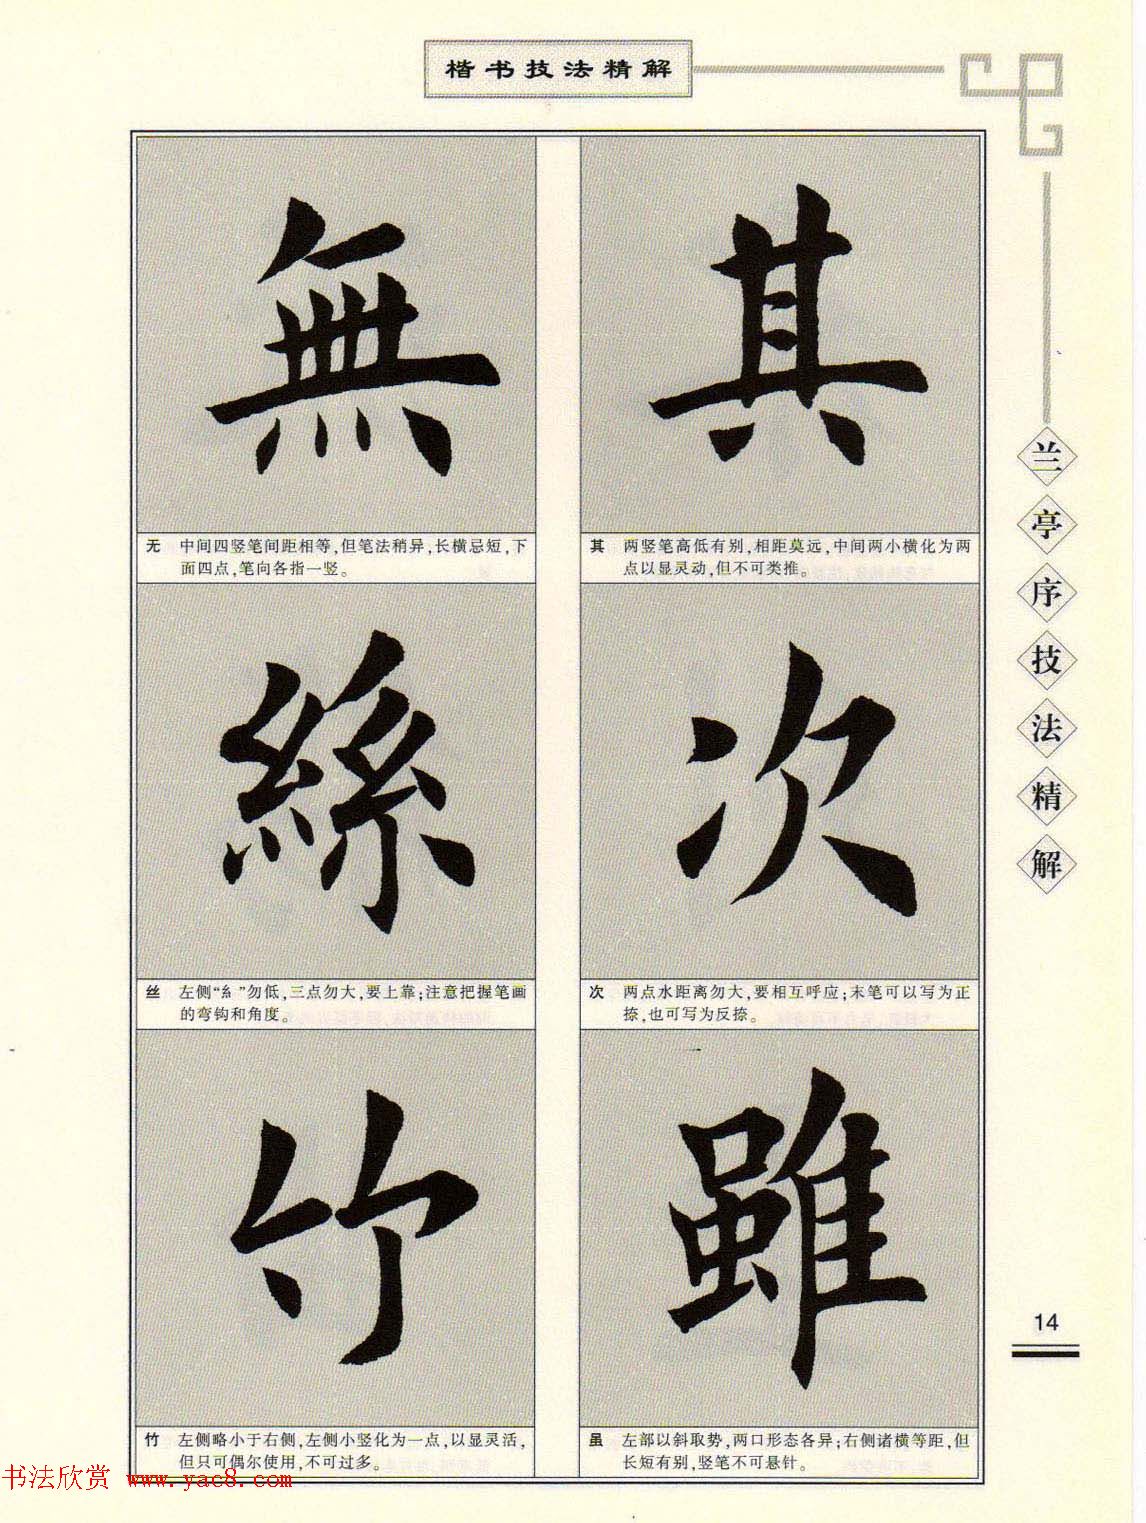 楷书技法精解
兰亭序技法精解
其
其 两竖笔高低有别,相距莫远,中间两小横化为两
点以显灵动,但不可类推。
次
次 两点水距离勿大,要相互呼应;末笔可以写为正
捺,也可写为反捺。
雖
虽 左部以斜取势,两口形态各异;右侧诸横等距,但
长短有别,竖笔不可悬针。
無
无 中间四竖笔间距相等,但笔法稍异,长横忌短,下
面四点,笔向各指一竖。
絲
丝 左侧“糹”勿低,三点勿大,要上靠;注意把握笔画
的弯钩和角度。
竹
竹 左侧略小于右侧,左侧小竖化为一点,以显灵活,
但只可偶尔使用,不可过多。
14
书法欣赏 www.yac8.com